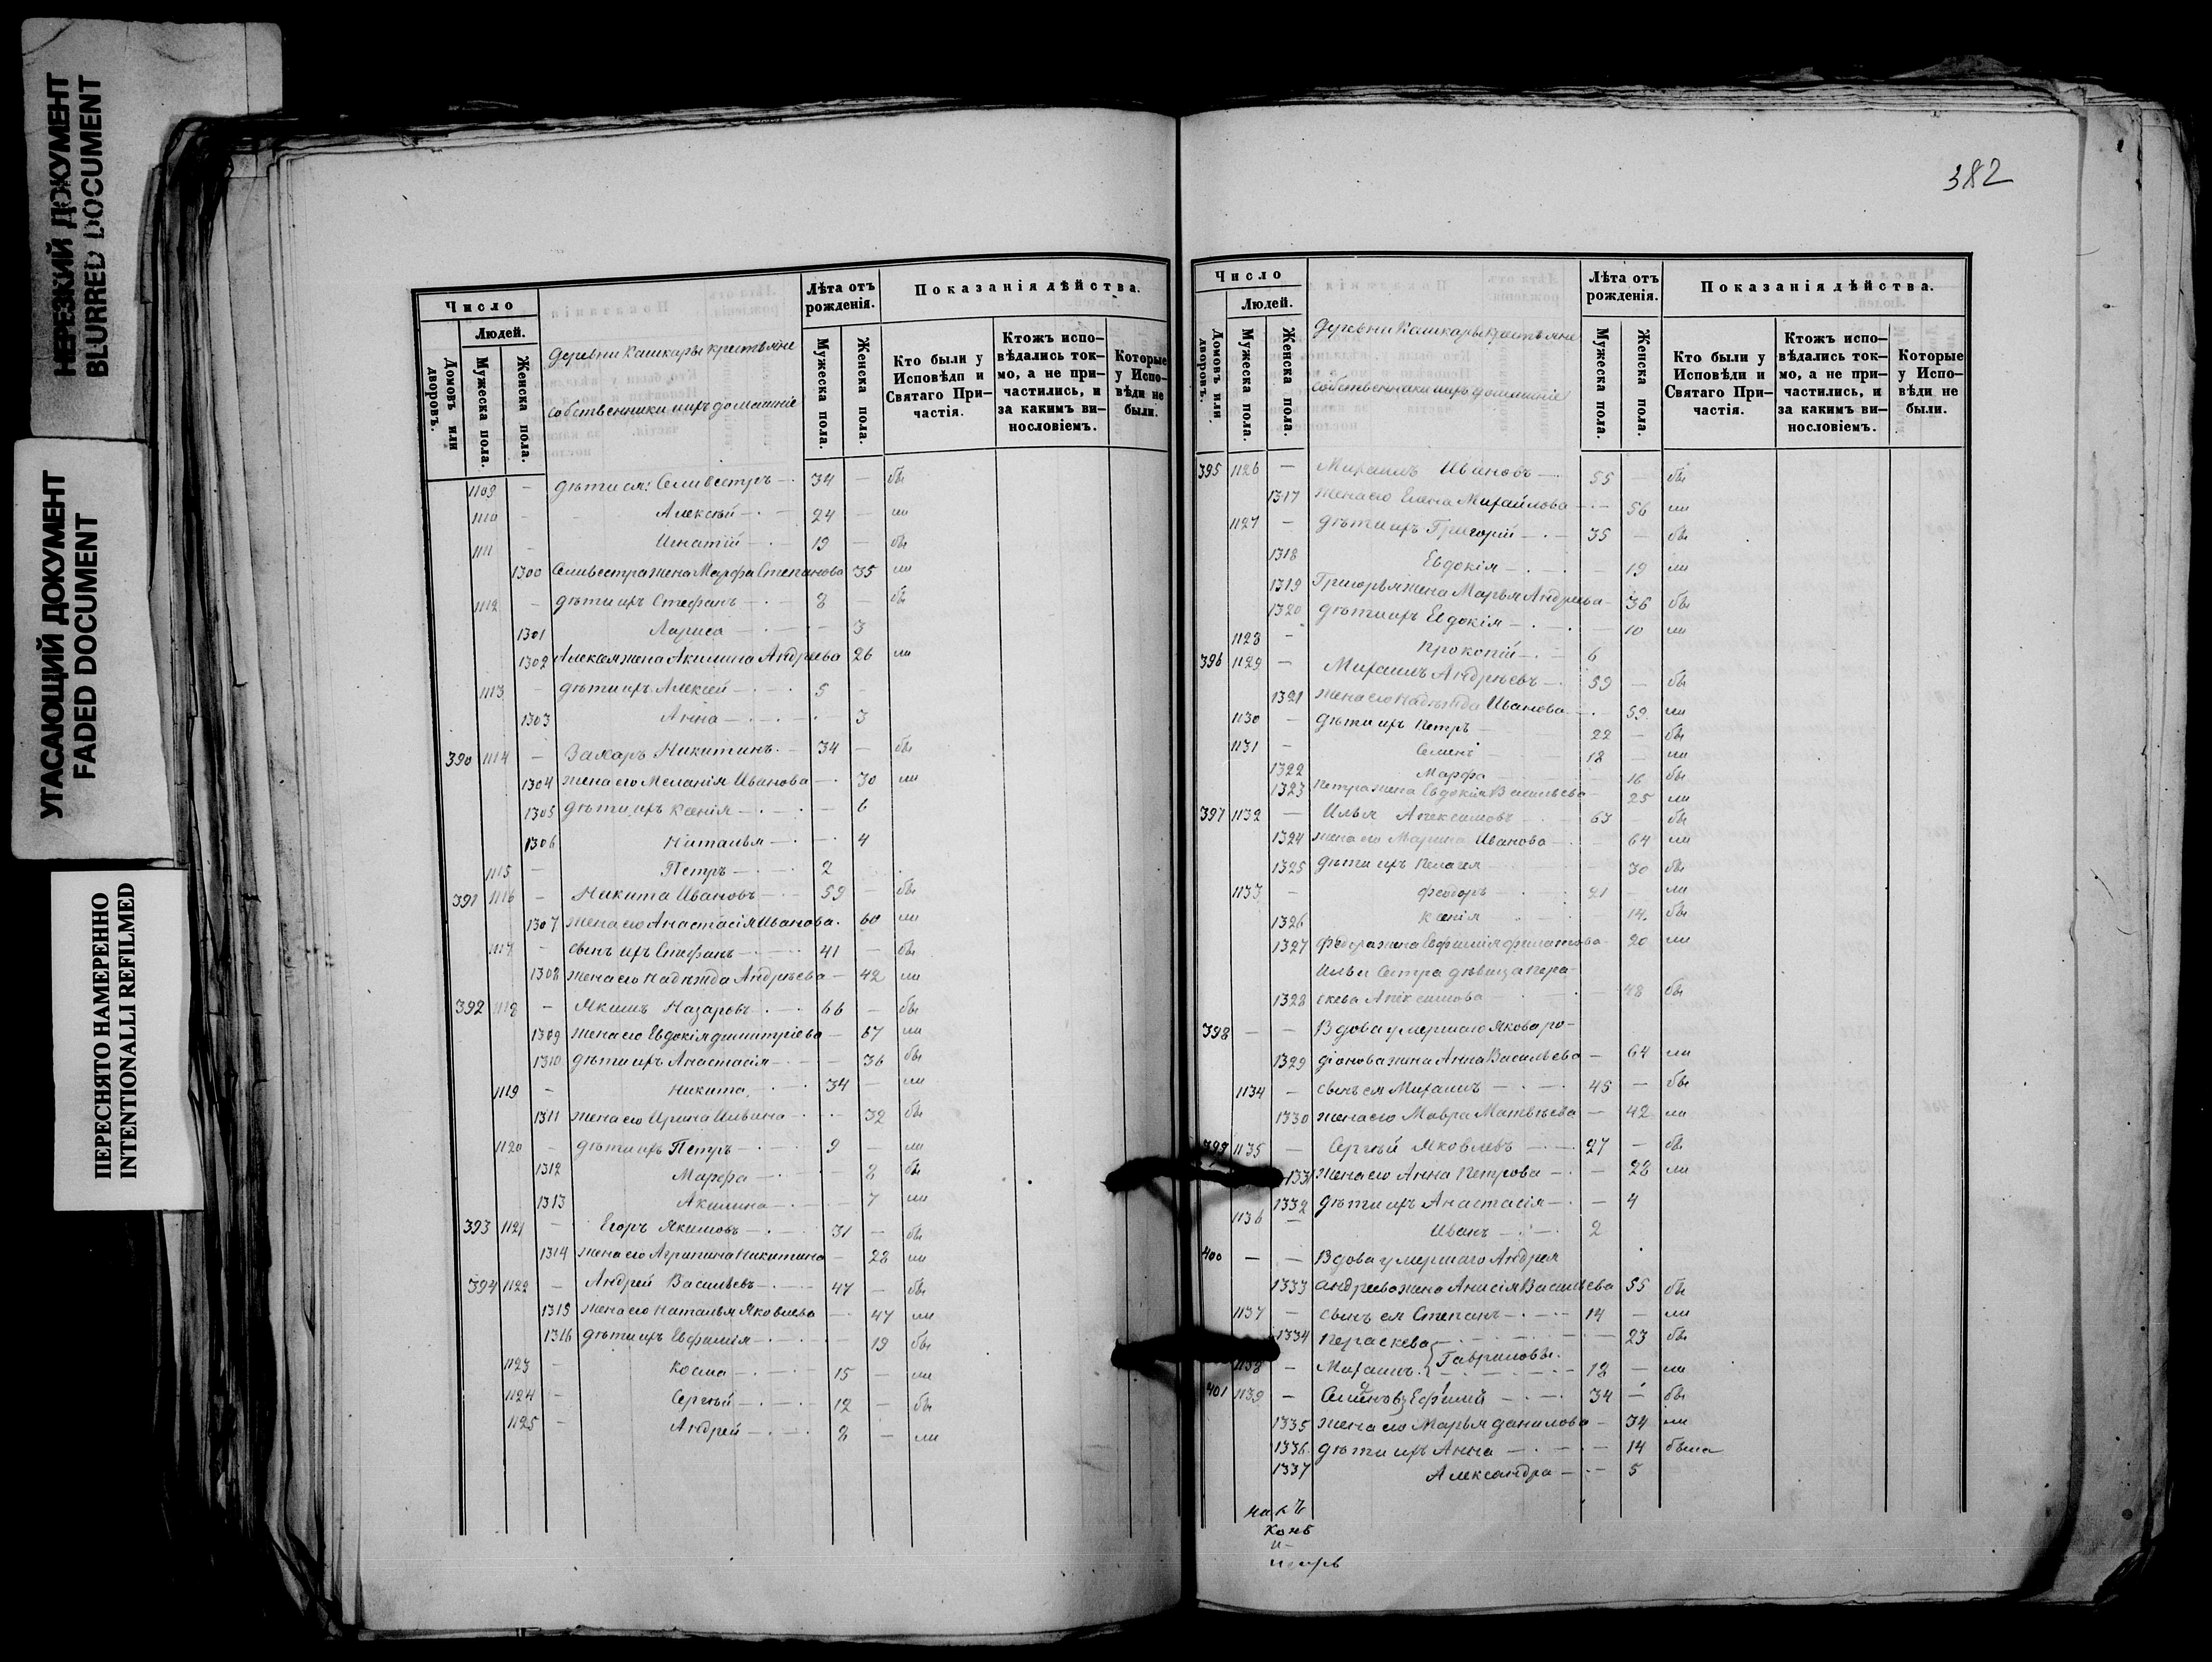 НЕРЕЗКИЙ ДОКУМЕНТ
BLURRED DOCUMENT
УГАСАЮЩИЙ ДОКУМЕНТ
FADED DOCUMENT
ПЕРЕСНЯТО НАМЕРЕННО
INTENTIONALLI REFILMED
Число
Людей.
Домовъ или дворовъ.
Мужеска пола.
Женска пола.
Деревни Кашкары крестьяне
собственники и ихъ домашніе
Лѣта отъ рожденія.
Мужеска пола.
Женска пола.
Показанія дѣйства.
Кто были у Исповѣди и Святаго Причастія.
Ктожъ исповѣдались токмо, а не причастились, и за какимъ винословіемъ.
Которые у Исповѣди не были.
1109 — дѣти ея: Селивестръ — 34 — бы
1110 — Алексѣй — 24 — ли
1111 — Игнатій — 19 — бы
1300 Селивестра жена Марфа Степанова 35 ли
1112 — дѣти ихъ Стефанъ — 8 — бы
1301 Лариса — 3
1302 Алексея жена Акилина Андреева 26 ли
1113 — дѣти ихъ Алексей — 5 —
1303 Анна — 3
390 1114 — Захаръ Никитинъ — 34 — бы
1304 жена его Меланія Иванова — 30 ли
1305 дѣти ихъ Ксенія — 6
1306 Наталья — 4
1115 — Петръ — 2
391 1116 — Никита Ивановъ — 59 — бы
1307 жена его Анастасія Иванова 60 ли
1117 — сынъ ихъ Стефанъ — 41 — бы
1308 жена его Надежда Андрѣева — 42 ли
392 1118 — Якимъ Назаровъ — 66 — бы
1309 жена его Евдокія Димитріева — 67 ли
1310 дѣти ихъ Анастасія — 36 бы
1119 — Никита — 34 — ли
1311 жена его Ирина Ильина — 32 бы
1120 — дѣти ихъ Петръ — 9 — ли
1312 Марфа — 8 бы
1313 Акилина — 7 ли
393 1121 — Егоръ Якимовъ — 31 — бы
1314 жена его Агрипина Никитина — 28 ли
394 1122 — Андрей Васильевъ — 47 — бы
1315 жена его Наталья Яковлева — 47 ли
1316 дѣти ихъ Евфимія — 19 бы
1123 — Косма — 15 — ли
1124 — Сергѣй — 12 — бы
1125 — Андрей — 8 — ли
382
Число
Людей.
Домовъ или дворовъ.
Мужеска пола.
Женска пола.
Деревни Кашкары крестьяне
собственники и ихъ домашніе
Лѣта отъ рожденія.
Мужеска пола.
Женска пола.
Показанія дѣйства.
Кто были у Исповѣди и Святаго Причастія.
Ктожъ исповѣдались токмо, а не причастились, и за какимъ винословіемъ.
Которые у Исповѣди не были.
395 1126 — Михаилъ Ивановъ — 55 — бы
1317 жена его Елена Михайлова — 56 ли
1127 — дѣти ихъ Григорій — 35 — бы
1318 Евдокія — 19 ли
1319 Григорья жена Марья Андреева — 36 бы
1320 дѣти ихъ Евдокія — 10 ли
1128 — Прокопій — 6
396 1129 — Михаилъ Андрѣевъ — 59 — бы
1321 жена его Надежда Иванова — 59 ли
1130 — дѣти ихъ Петръ — 22 — бы
1131 — Семенъ — 18 — ли
1322 Марфа — 16 бы
1323 Петра жена Евдокія Васильева — 25 ли
397 1132 — Илья Алексимовъ — 63 — бы
1324 жена его Марина Иванова — 64 ли
1325 дѣти ихъ Пелагея — 30 бы
1133 — Феодоръ — 21 — ли
1326 Ксенія — 14 бы
1327 Федора жена Евфимія Филатова — 20 ли
Ильи сестра дѣвица Пера-
1328 скева Алексимова — 48 бы
398 — — Вдова умершаго Якова Ро-
1329 діонова жена Анна Васильева — 64 ли
1134 — сынъ ея Михаилъ — 45 — бы
1330 жена его Мавра Матвѣева — 42 ли
399 1135 — Сергѣй Яковлевъ — 27 — бы
1331 жена его Анна Петрова — 28 ли
1332 дѣти ихъ Анастасія — 4
1136 — Иванъ — 2
400 — — Вдова умершаго Андрея
1333 Андреева жена Анисія Васильева 55 бы
1137 — сынъ ея Степанъ — 14 — ли
1334 Пераскева — 23 бы
Гавриловы
1138 — Михаилъ — 18 — ли
401 1139 — Семеновъ Ефимій — 34 — бы
1335 жена его Марья Данилова — 34 ли
1336 дѣти ихъ Анна — 14 была
1337 Александра — 5